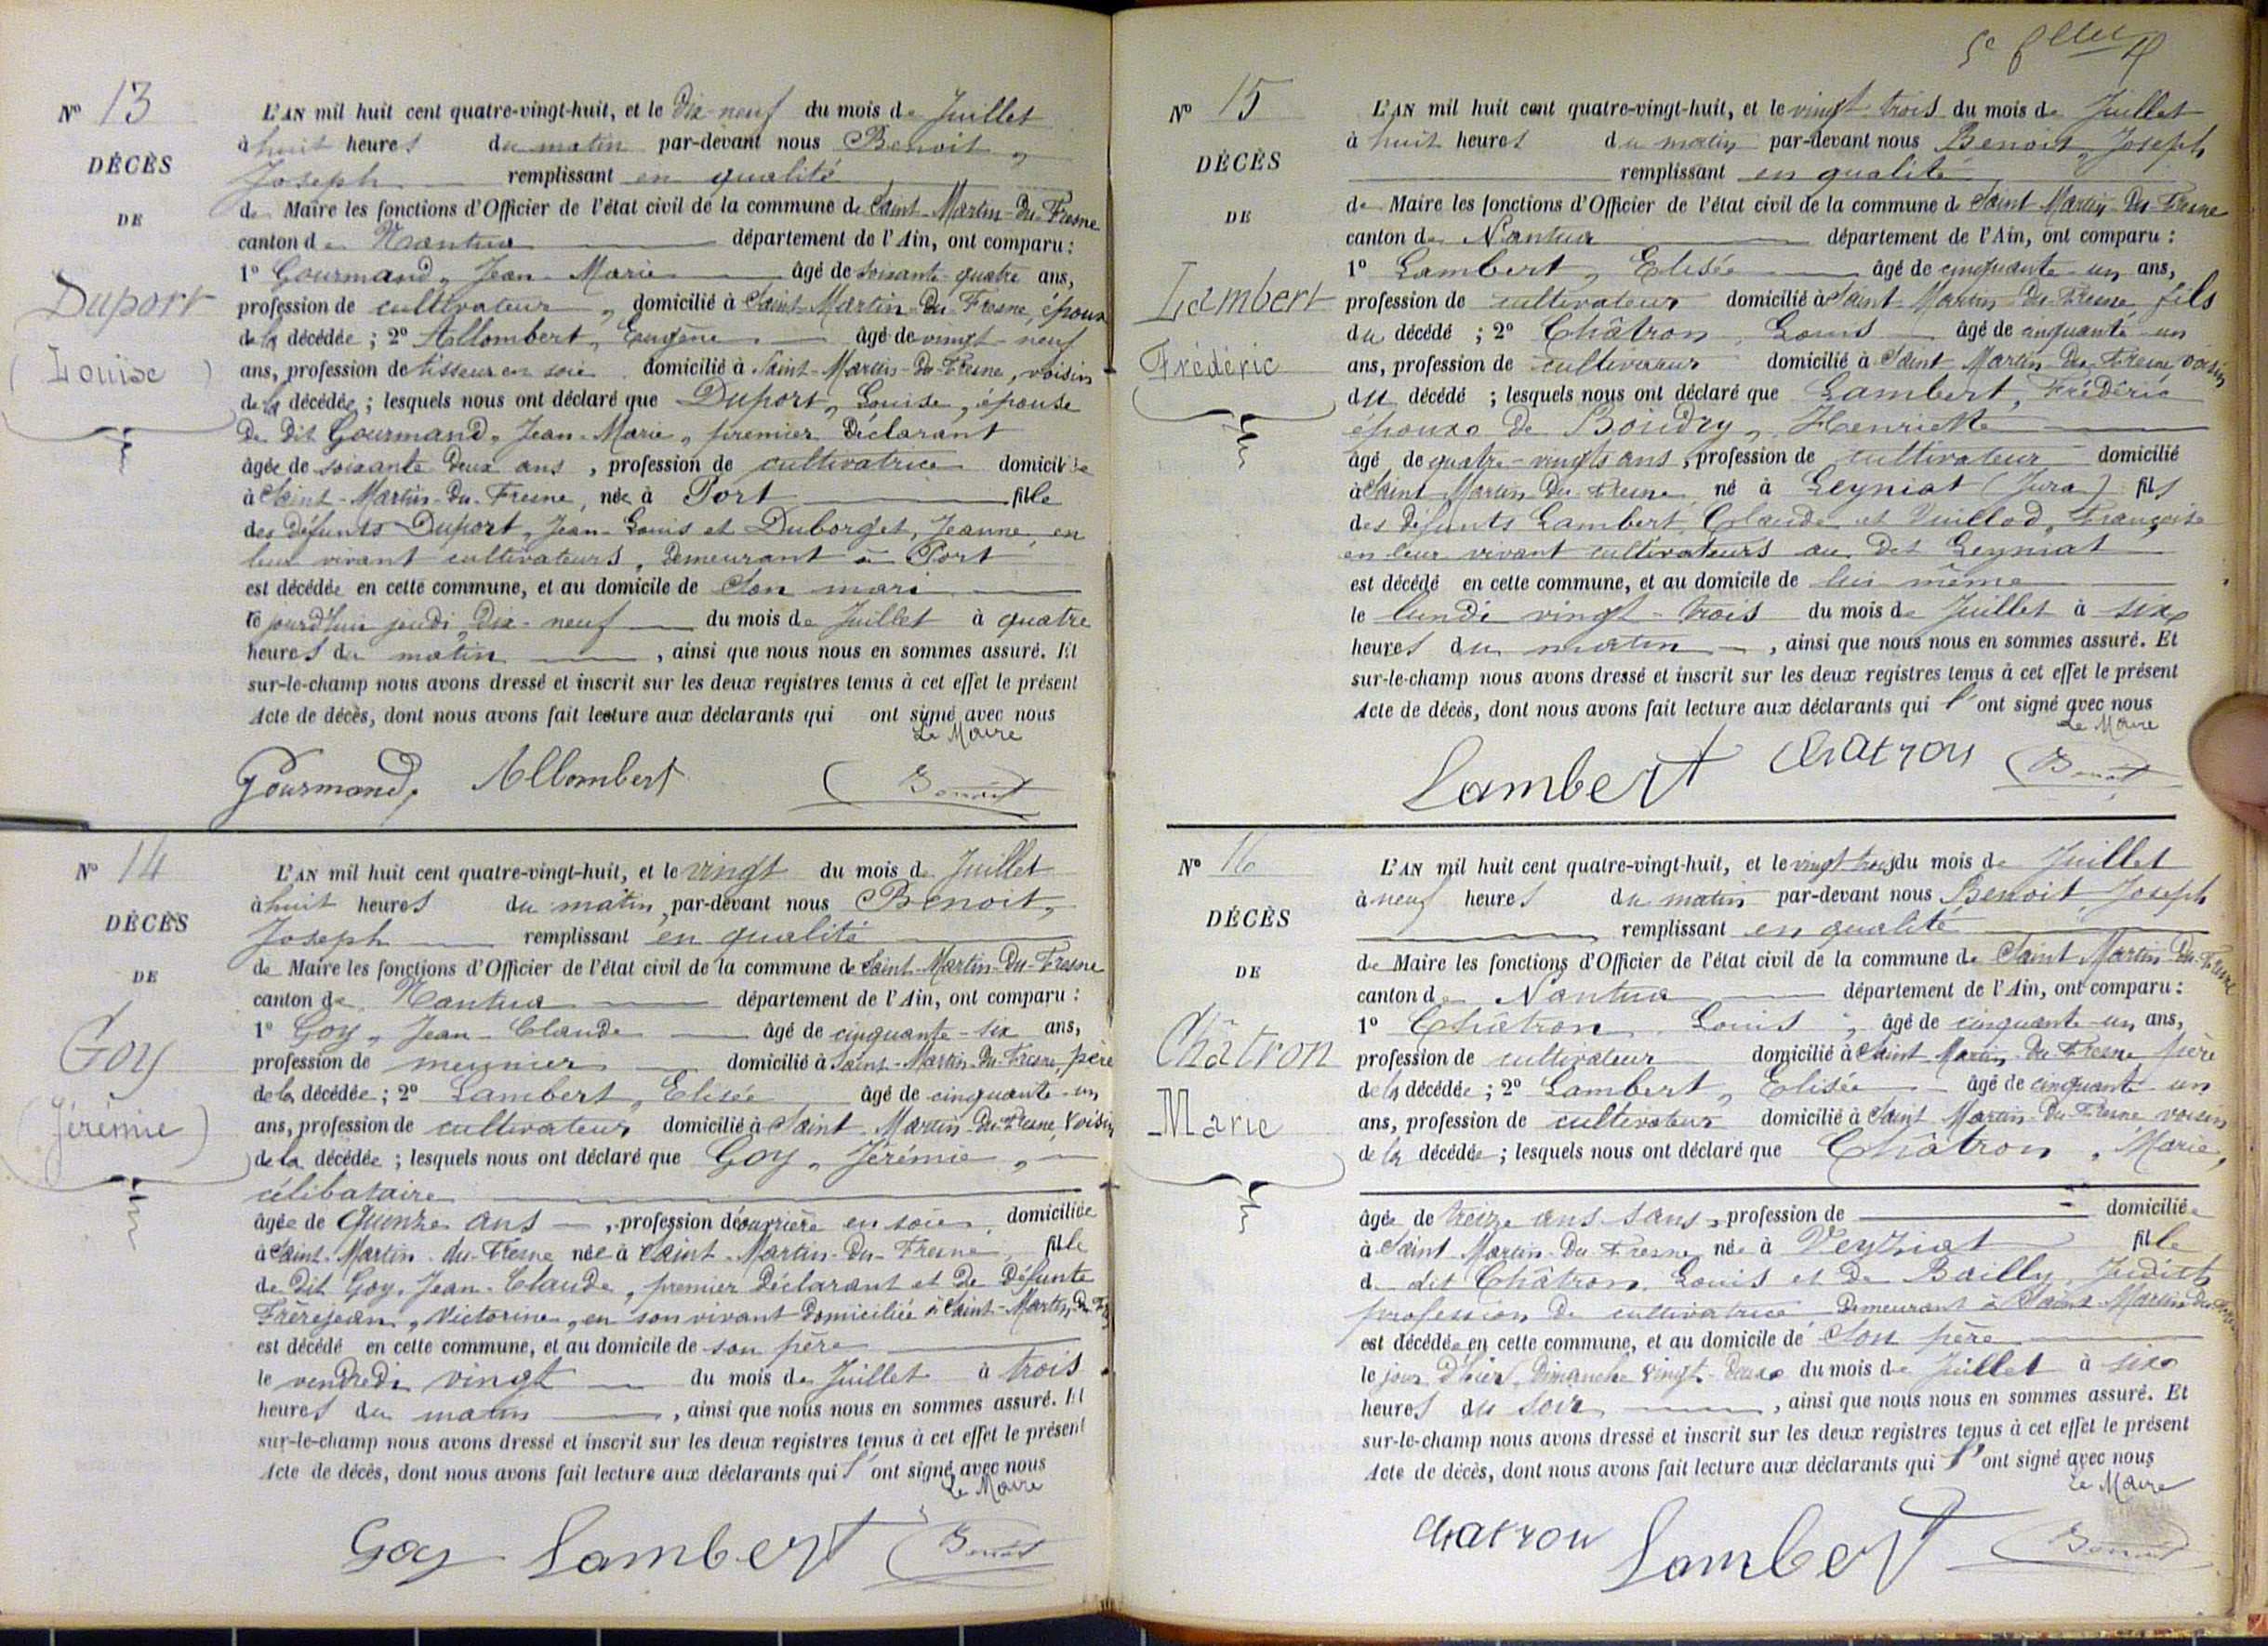 N° 13
DÉCÈS
DE
Duport
(Louise)
L'AN mil huit cent quatre-vingt-huit, et le Dix-neuf du mois de Juillet
à huit heures du matin par-devant nous Benoit,
Joseph remplissant en qualité
de Maire les fonctions d'Officier de l'état civil de la commune de Saint-Martin-du-Fresne
canton de Nantua département de l'Ain, ont comparu :
1° Gourmand, Jean-Marie âgé de soixante-quatre ans,
profession de cultivateur, domicilié à Saint-Martin-du-Fresne, époux
de la décédée ; 2° Allombert, Eugène âgé de vingt-neuf
ans, profession de tisseur en soie domicilié à Saint-Martin-du-Fresne, voisin
de la décédée ; lesquels nous ont déclaré que Duport, Louise, épouse
de dit Gourmand, Jean-Marie, premier Déclarant
âgée de soixante deux ans, profession de cultivatrice domiciliée
à Saint-Martin-du-Fresne, née à Port fille
des Défunts Duport, Jean-Louis et Duborget, Jeanne, en
leur vivant cultivateurs, demeurant à Port
est décédée en cette commune, et au domicile de Son mari
le jourd'hui jeudi, Dix-neuf du mois de Juillet à quatre
heures du matin, ainsi que nous nous en sommes assuré. Et
sur-le-champ nous avons dressé et inscrit sur les deux registres tenus à cet effet le présent
Acte de décès, dont nous avons fait lecture aux déclarants qui ont signé avec nous
Le Maire
Gourmand, Allombert Benoit
N° 14
DÉCÈS
DE
Goy
(Jérémie)
L'AN mil huit cent quatre-vingt-huit, et le vingt du mois de Juillet
à huit heures du matin, par-devant nous Benoit,
Joseph remplissant en qualité
de Maire les fonctions d'Officier de l'état civil de la commune de Saint-Martin-du-Fresne
canton de Nantua département de l'Ain, ont comparu :
1° Goy, Jean-Claude âgé de cinquante-six ans,
profession de meunier domicilié à Saint-Martin-du-Fresne, père
de la décédée ; 2° Lambert, Elisée âgé de cinquante-un
ans, profession de cultivateur domicilié à Saint-Martin-du-Fresne, voisin
de la décédée ; lesquels nous ont déclaré que Goy, Jérémie,
célibataire
âgée de quinze ans, profession d'ouvrière en soie, domiciliée
à Saint-Martin-du-Fresne née à Saint-Martin-du-Fresne, fille
de dit Goy, Jean-Claude, premier Déclarant et de Défunte
Frèrejean, Victorine, en son vivant domiciliée à Saint-Martin-du-
est décédé en cette commune, et au domicile de son père
le vendredi vingt du mois de Juillet à trois
heures du matin, ainsi que nous nous en sommes assuré. Et
sur-le-champ nous avons dressé et inscrit sur les deux registres tenus à cet effet le présent
Acte de décès, dont nous avons fait lecture aux déclarants qui l'ont signé avec nous
Le Maire
Goy Lambert Benoit
5e
N° 15
DÉCÈS
DE
Lambert
Frédéric
L'AN mil huit cent quatre-vingt-huit, et le vingt-trois du mois de Juillet
à huit heures du matin par-devant nous Benoit, Joseph
remplissant en qualité
de Maire les fonctions d'Officier de l'état civil de la commune de Saint-Martin-du-Fresne
canton de Nantua département de l'Ain, ont comparu :
1° Lambert, Elisée âgé de cinquante-un ans,
profession de cultivateur domicilié à Saint-Martin-du-Fresne, fils
du décédé ; 2° Châtron, Louis âgé de cinquante-un
ans, profession de cultivateur domicilié à Saint-Martin-du-Fresne, voisin
du décédé ; lesquels nous ont déclaré que Lambert, Frédéric
époux de Boudry, Henriette
âgé de quatre-vingts ans, profession de cultivateur domicilié
à Saint-Martin-du-Fresne, né à Leyniat (Jura) fils
des défunts Lambert, Claude et Vuillod, Françoise
en leur vivant cultivateurs au dit Leyniat
est décédé en cette commune, et au domicile de lui même
le lundi vingt-trois du mois de Juillet à six
heures du matin, ainsi que nous nous en sommes assuré. Et
sur-le-champ nous avons dressé et inscrit sur les deux registres tenus à cet effet le présent
Acte de décès, dont nous avons fait lecture aux déclarants qui l'ont signé avec nous
Le Maire
Lambert Chatron Benoit
N° 16
DÉCÈS
DE
Châtron
Marie
L'AN mil huit cent quatre-vingt-huit, et le vingt trois du mois de Juillet
à neuf heures du matin par-devant nous Benoit Joseph
remplissant en qualité
de Maire les fonctions d'Officier de l'état civil de la commune de Saint-Martin-du-Fresne
canton de Nantua département de l'Ain, ont comparu :
1° Châtron, Louis, âgé de cinquante-un ans,
profession de cultivateur domicilié à Saint-Martin-du-Fresne père
de la décédée ; 2° Lambert, Elisée âgé de cinquante-un
ans, profession de cultivateur domicilié à Saint-Martin-du-Fresne voisin
de la décédée ; lesquels nous ont déclaré que Châtron, Marie,
âgée de treize ans sans profession de domiciliée
à Saint-Martin-du-Fresne, née à Veyziat fille
de dit Châtron, Louis et de Bailly, Judith
profession de cultivatrice demeurant à Saint-Martin-du-Fresne
est décédée en cette commune, et au domicile de Son père
le jour d'hier, Dimanche vingt-deux du mois de Juillet à six
heures du soir, ainsi que nous nous en sommes assuré. Et
sur-le-champ nous avons dressé et inscrit sur les deux registres tenus à cet effet le présent
Acte de décès, dont nous avons fait lecture aux déclarants qui l'ont signé avec nous
Le Maire
Chatron Lambert Benoit